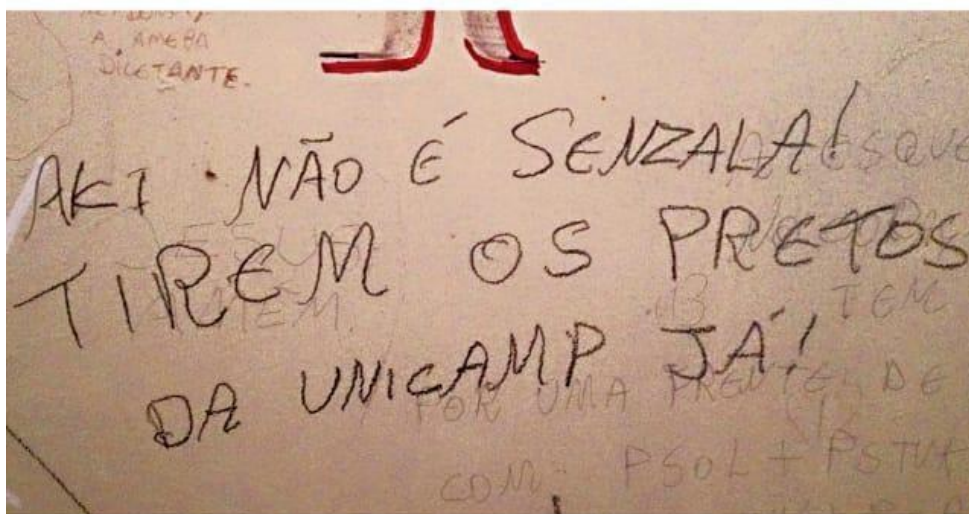 A AMEBA
DILETANTE.
AKI NÃO É SENZALA!
TIREM OS PRETOS
DA UNICAMP JÁ!
TEM
POR UMA FRENTE DE
COM PSOL + PSTU